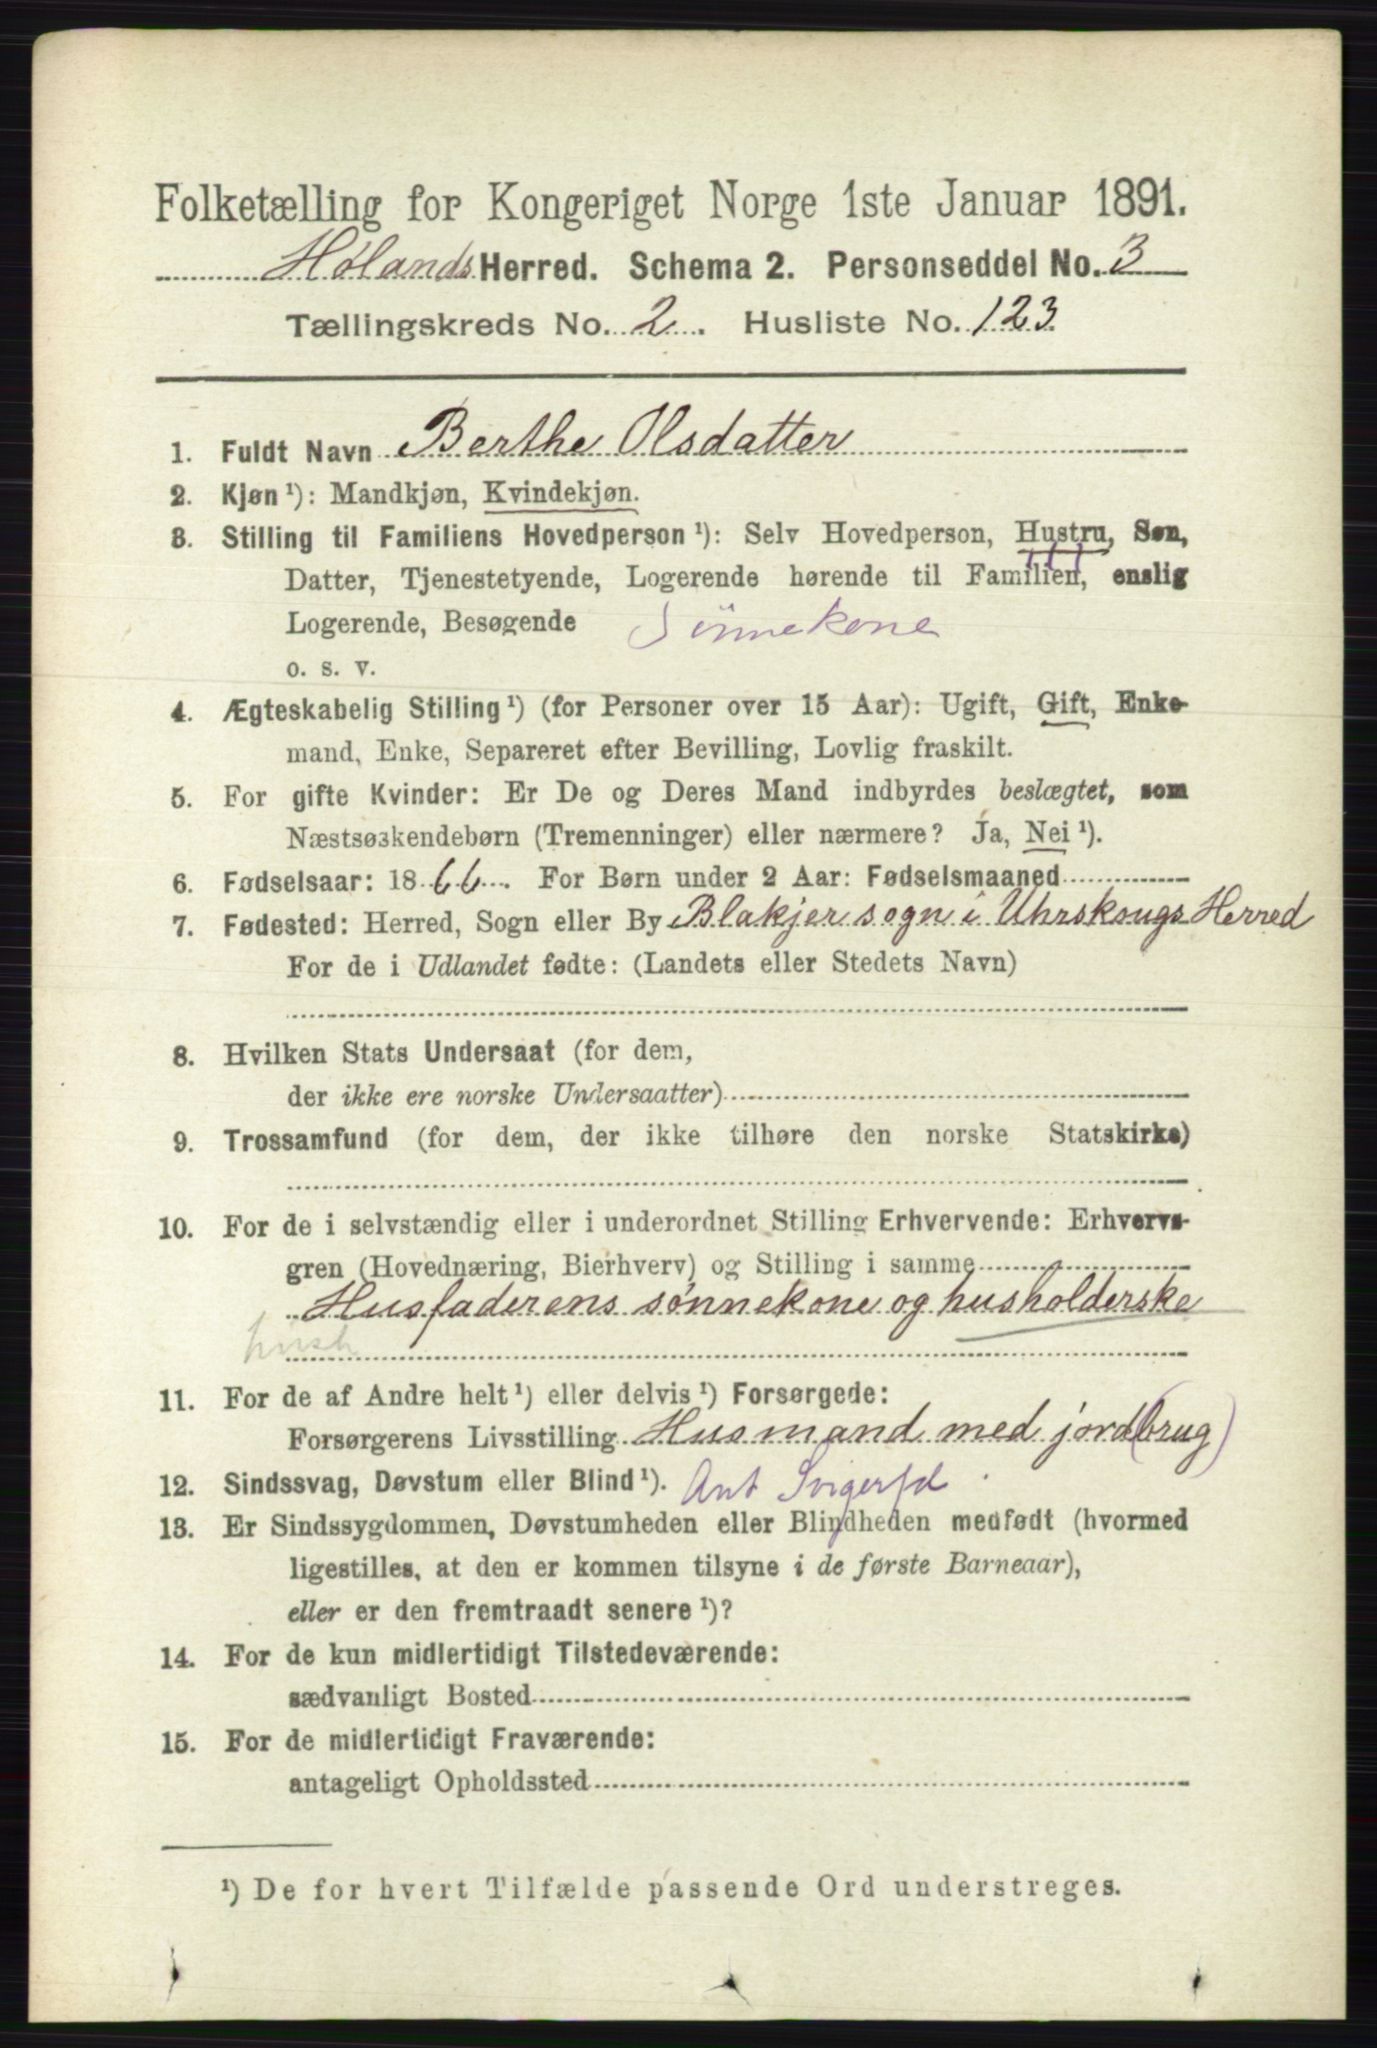 Folketælling for Kongeriget Norge 1ste Januar 1891.
Hølands Herred. Schema 2. Personseddel No. 3
Tællingskreds No. 2. Husliste No. 123
1. Fuldt Navn Berthe Olsdatter
2. Kjøn ¹): Mandkjøn, Kvindekjøn.
3. Stilling til Familiens Hovedperson ¹): Selv Hovedperson, Hustru, Søn,
Datter, Tjenestetyende, Logerende hørende til Familien, enslig
Logerende, Besøgende Sönnekone
o. s. v.
4. Ægteskabelig Stilling ¹) (for Personer over 15 Aar): Ugift, Gift, Enke-
mand, Enke, Separeret efter Bevilling, Lovlig fraskilt.
5. For gifte Kvinder: Er De og Deres Mand indbyrdes beslægtet, som
Næstsøskendebørn (Tremenninger) eller nærmere? Ja, Nei ¹).
6. Fødselsaar: 1866. For Børn under 2 Aar: Fødselsmaaned
7. Fødested: Herred, Sogn eller By Blakjer sogn i Uhrskougs Herred
For de i Udlandet fødte: (Landets eller Stedets Navn)
8. Hvilken Stats Undersaat (for dem,
der ikke ere norske Undersaatter)
9. Trossamfund (for dem, der ikke tilhøre den norske Statskirke)
10. For de i selvstændig eller i underordnet Stilling Erhvervende: Erhvervs-
gren (Hovednæring, Bierhverv) og Stilling i samme
Husfaderens sønnekone og husholderske
hush
11. For de af Andre helt ¹) eller delvis ¹) Forsørgede:
Forsørgerens Livsstilling Husmand med jord(brug)
12. Sindssvag, Døvstum eller Blind ¹). Ant Svigerfd
13. Er Sindssygdommen, Døvstumheden eller Blindheden medfødt (hvormed
ligestilles, at den er kommen tilsyne i de første Barneaar),
eller er den fremtraadt senere ¹)?
14. For de kun midlertidigt Tilstedeværende:
sædvanligt Bosted
15. For de midlertidigt Fraværende:
antageligt Opholdssted
¹) De for hvert Tilfælde passende Ord understreges.